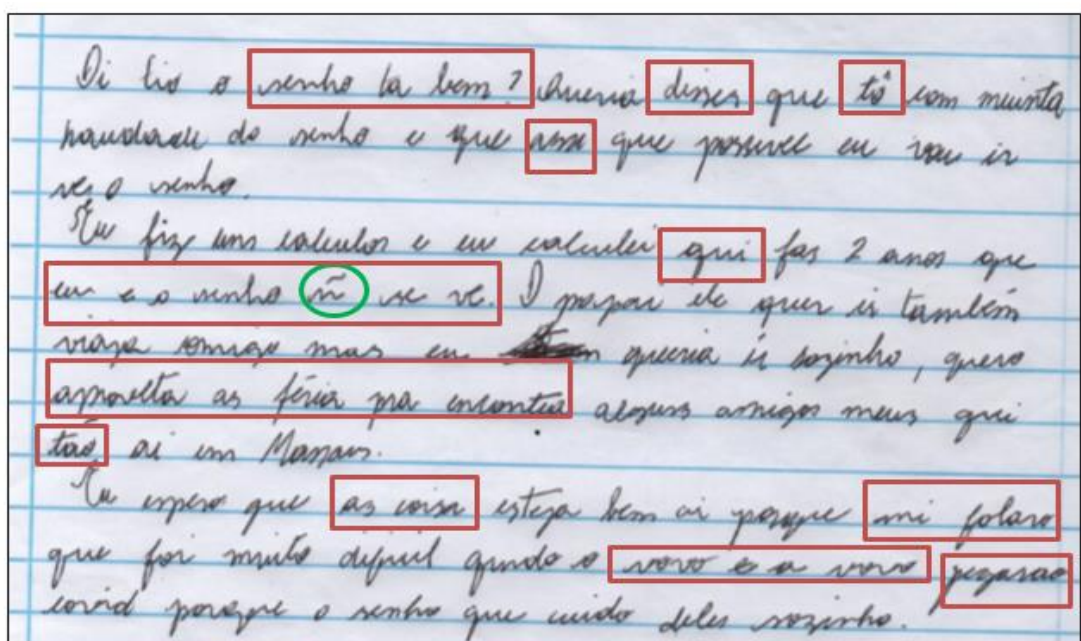 Oi tio o senho ta bem? Queria dizes que tô com muinta
saudade do senho e que assi que possivel eu vou ir
ve o senho.
Eu fiz uns calculos e eu calculei qui fas 2 anos que
eu e o senho ñ se ve. O papai ele quer ir também
viaja comigo mas eu queria ir sozinho, quero
aproveita as féria pra encontra alguns amigos meus qui
tão ai em Manaus.
Eu espero que as coisa esteja bem ai porque mi falaro
que foi muito dificil qundo o vovo e a vovo pegarao
covid porque o senho que cuido deles sozinho.